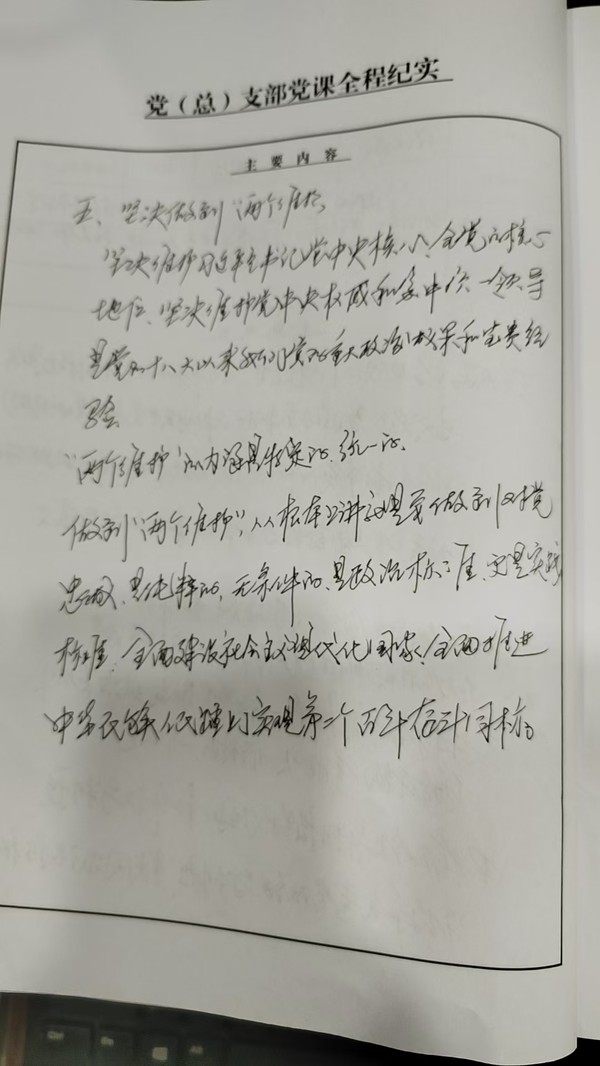 党（总）支部党课全程纪实
主要内容
五、坚决做到“两个维护
坚决维护习近平总书记党中央核心、全党的核心
地位、坚决维护党中央权威和集中统一领导
是党的十八大以来我们党的重大政治成果和宝贵经
验
“两个维护”的内涵是特定的、统一的。
做到“两个维护”，从根本上讲就是要做到对党
忠诚、是纯粹的，无条件的，是政治标准、更是实践
标准、全面建设社会主义现代化国家、全面推进
中华民族 实现第二个百年奋斗目标。